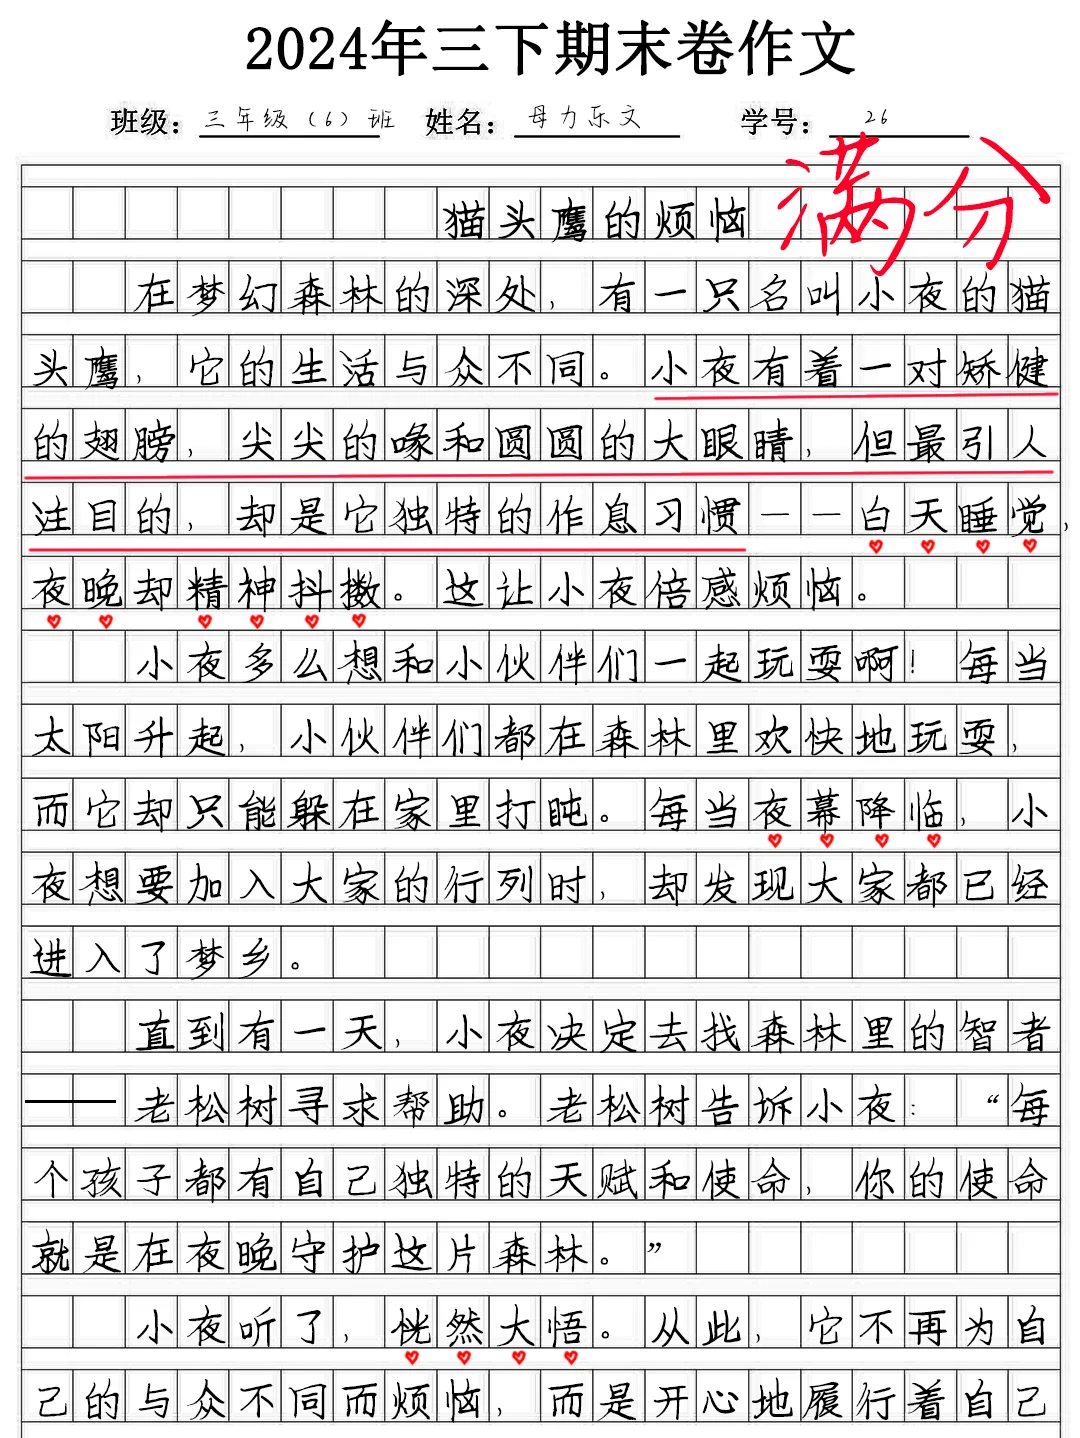 2024年三下期末卷作文
班级：三年级（6）班 姓名：母力乐文 学号：26
满分
猫头鹰的烦恼
在梦幻森林的深处，有一只名叫小夜的猫
头鹰，它的生活与众不同。小夜有着一对矫健
的翅膀，尖尖的喙和圆圆的大眼睛，但最引人
注目的，却是它独特的作息习惯——白天睡觉，
夜晚却精神抖擞。这让小夜倍感烦恼。
小夜多么想和小伙伴们一起玩耍啊！每当
太阳升起，小伙伴们都在森林里欢快地玩耍，
而它却只能躲在家里打盹。每当夜幕降临，小
夜想要加入大家的行列时，却发现大家都已经
进入了梦乡。
直到有一天，小夜决定去找森林里的智者
——老松树寻求帮助。老松树告诉小夜：“每
个孩子都有自己独特的天赋和使命，你的使命
就是在夜晚守护这片森林。”
小夜听了，恍然大悟。从此，它不再为自
己的与众不同而烦恼，而是开心地履行着自己